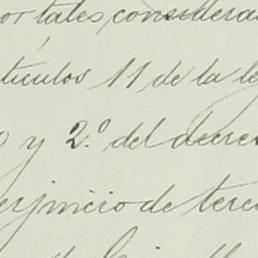 por tales considera
tículos 11 de la le
o y 2.º del decre
erjuicio de terce